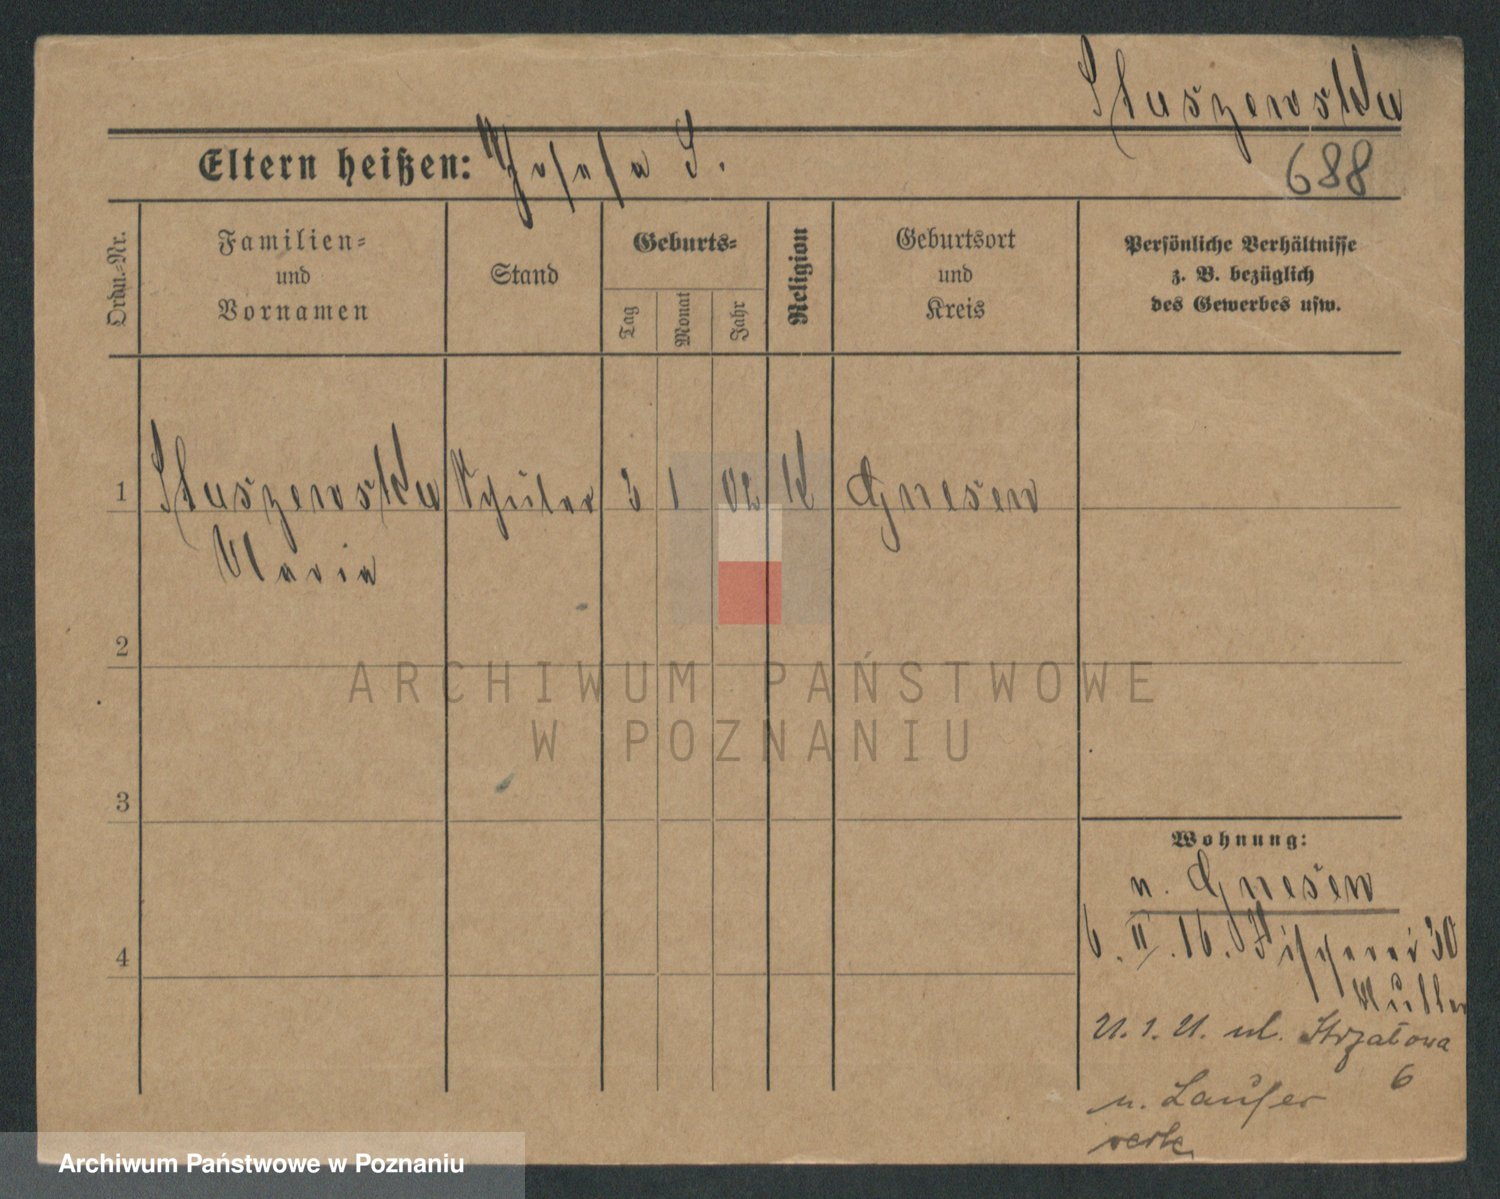 Stuszewska
Eltern heißen: Josefa S.
688
Ordn.-Nr.
Familien-
und
Vornamen
Stand
Geburts-
Tag
Monat
Jahr
Religion
Geburtsort
und
Kreis
Persönliche Verhältnisse
z. B. bezüglich
des Gewerbes usw.
1 Stuszewska Schüler 3 1 02 K Gnesen
Maria
2
ARCHIWUM PAŃSTWOWE
W POZNANIU
3
Wohnung:
n. Gnesen
6. II. 16. Fischerei 30
4
Müller
21. 1. 21. ul. Strzałowa
6
n.
Archiwum Państwowe w Poznaniu